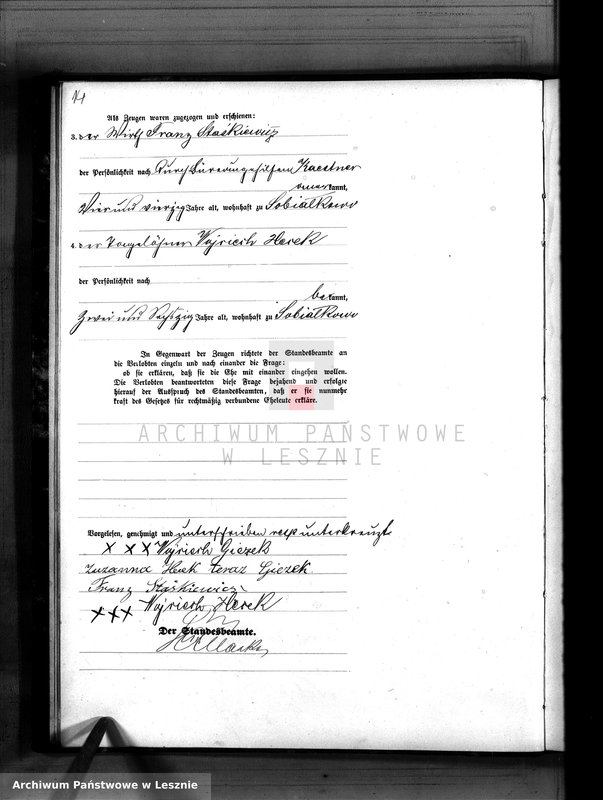 14
Als Zeugen waren zugezogen und erschienen:
3. der Wirth Franz Staśkiewicz
der Persönlichkeit nach durch Büreaugehilfen Kaestner
bekannt,
Vier und vierzig Jahre alt, wohnhaft zu Sobialkowo
4. der Tagelöhner Wojciech Herek
der Persönlichkeit nach
bekannt,
Zwei und Sechszig Jahre alt, wohnhaft zu Sobialkowo
In Gegenwart der Zeugen richtete der Standesbeamte an
die Verlobten einzeln und nach einander die Frage:
ob sie erklären, daß sie die Ehe mit einander eingehen wollen.
Die Verlobten beantworteten diese Frage bejahend und erfolgte
hierauf der Ausspruch des Standesbeamten, daß er sie nunmehr
kraft des Gesetzes für rechtmäßig verbundene Eheleute erkläre.
ARCHIWUM PAŃSTWOWE
W LESZNIE
Vorgelesen, genehmigt und unterschrieben resp unterkreuzt
XXX Wojciech Giezek
Zuzanna Herek teraz Giezek
Franz Staśkiewicz
XXX Wojciech Herek
Der Standesbeamte.
Archiwum Państwowe w Lesznie